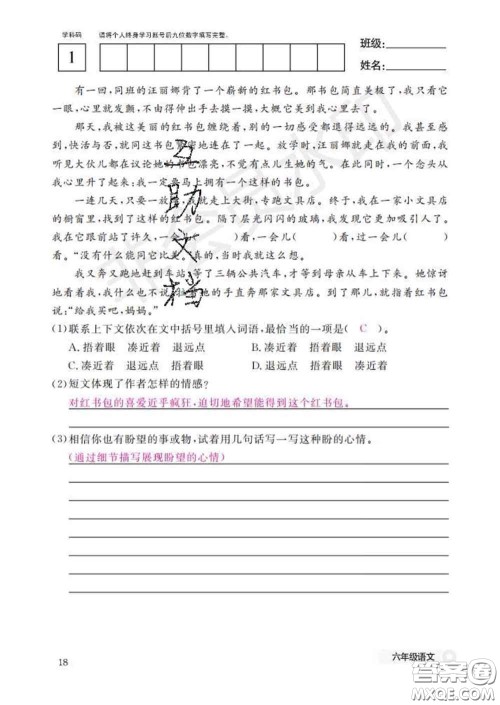 学科码 请将个人终身学习账号后九位数字填写完整。
1
班级:
姓名:
有一回,同班的汪丽娜背了一个崭新的红书包。那书包简直美极了,我只看它
一眼,心里就发颤,不由得伸出手去摸一摸,大概它美到我心里去了。
那天,我被这美丽的红书包缠绕着,别的一切感受都退得远远的。我甚至感
到,快活与否,就在同这书包
地连在了一起。放学时,汪丽娜就走在我的前面,我
听见大伙儿都在议论她的书包漂亮,不免有点儿生她的气。在此同时,一个念头从
我心里升了起来:我一定要马上拥有一个这样的书包。
一连几天,只要一放学,我就走上大街,专跑文具店。终于,在我家一个小文具店
的橱窗里,找到了这样的红书包。隔了层光闪闪的玻璃,我发现它更加吸引人了。
我在它跟前站了许久,一会儿( )看,一会儿( )看,一会儿( )
看。“没有什么能同它比美。”真的,当时我就这么想。
我又奔又跑地赶到车站,等了三辆公共汽车,才等到母亲从车上下来。她惊讶
地看着我
她的手直奔那家文具店。到了那儿,我就指着橱窗里的红书包
说:“给我买吧,妈妈。”
互助文档
(1)联系上下文依次在文中括号里填入词语,最恰当的一项是( C )。
A. 捂着眼 凑近着 退远点 B. 凑近着 捂着眼 退远点
C. 凑近着 退远点 捂着眼 D. 捂着眼 退远点 凑近着
(2)短文体现了作者怎样的情感?
对红书包的喜爱近乎疯狂,迫切地希望能得到这个红书包。
(3)相信你也有盼望的事或物,试着用几句话写一写这种盼的心情。
(通过细节描写展现盼望的心情)
18
六年级语文
答案圈
MXQE.COM